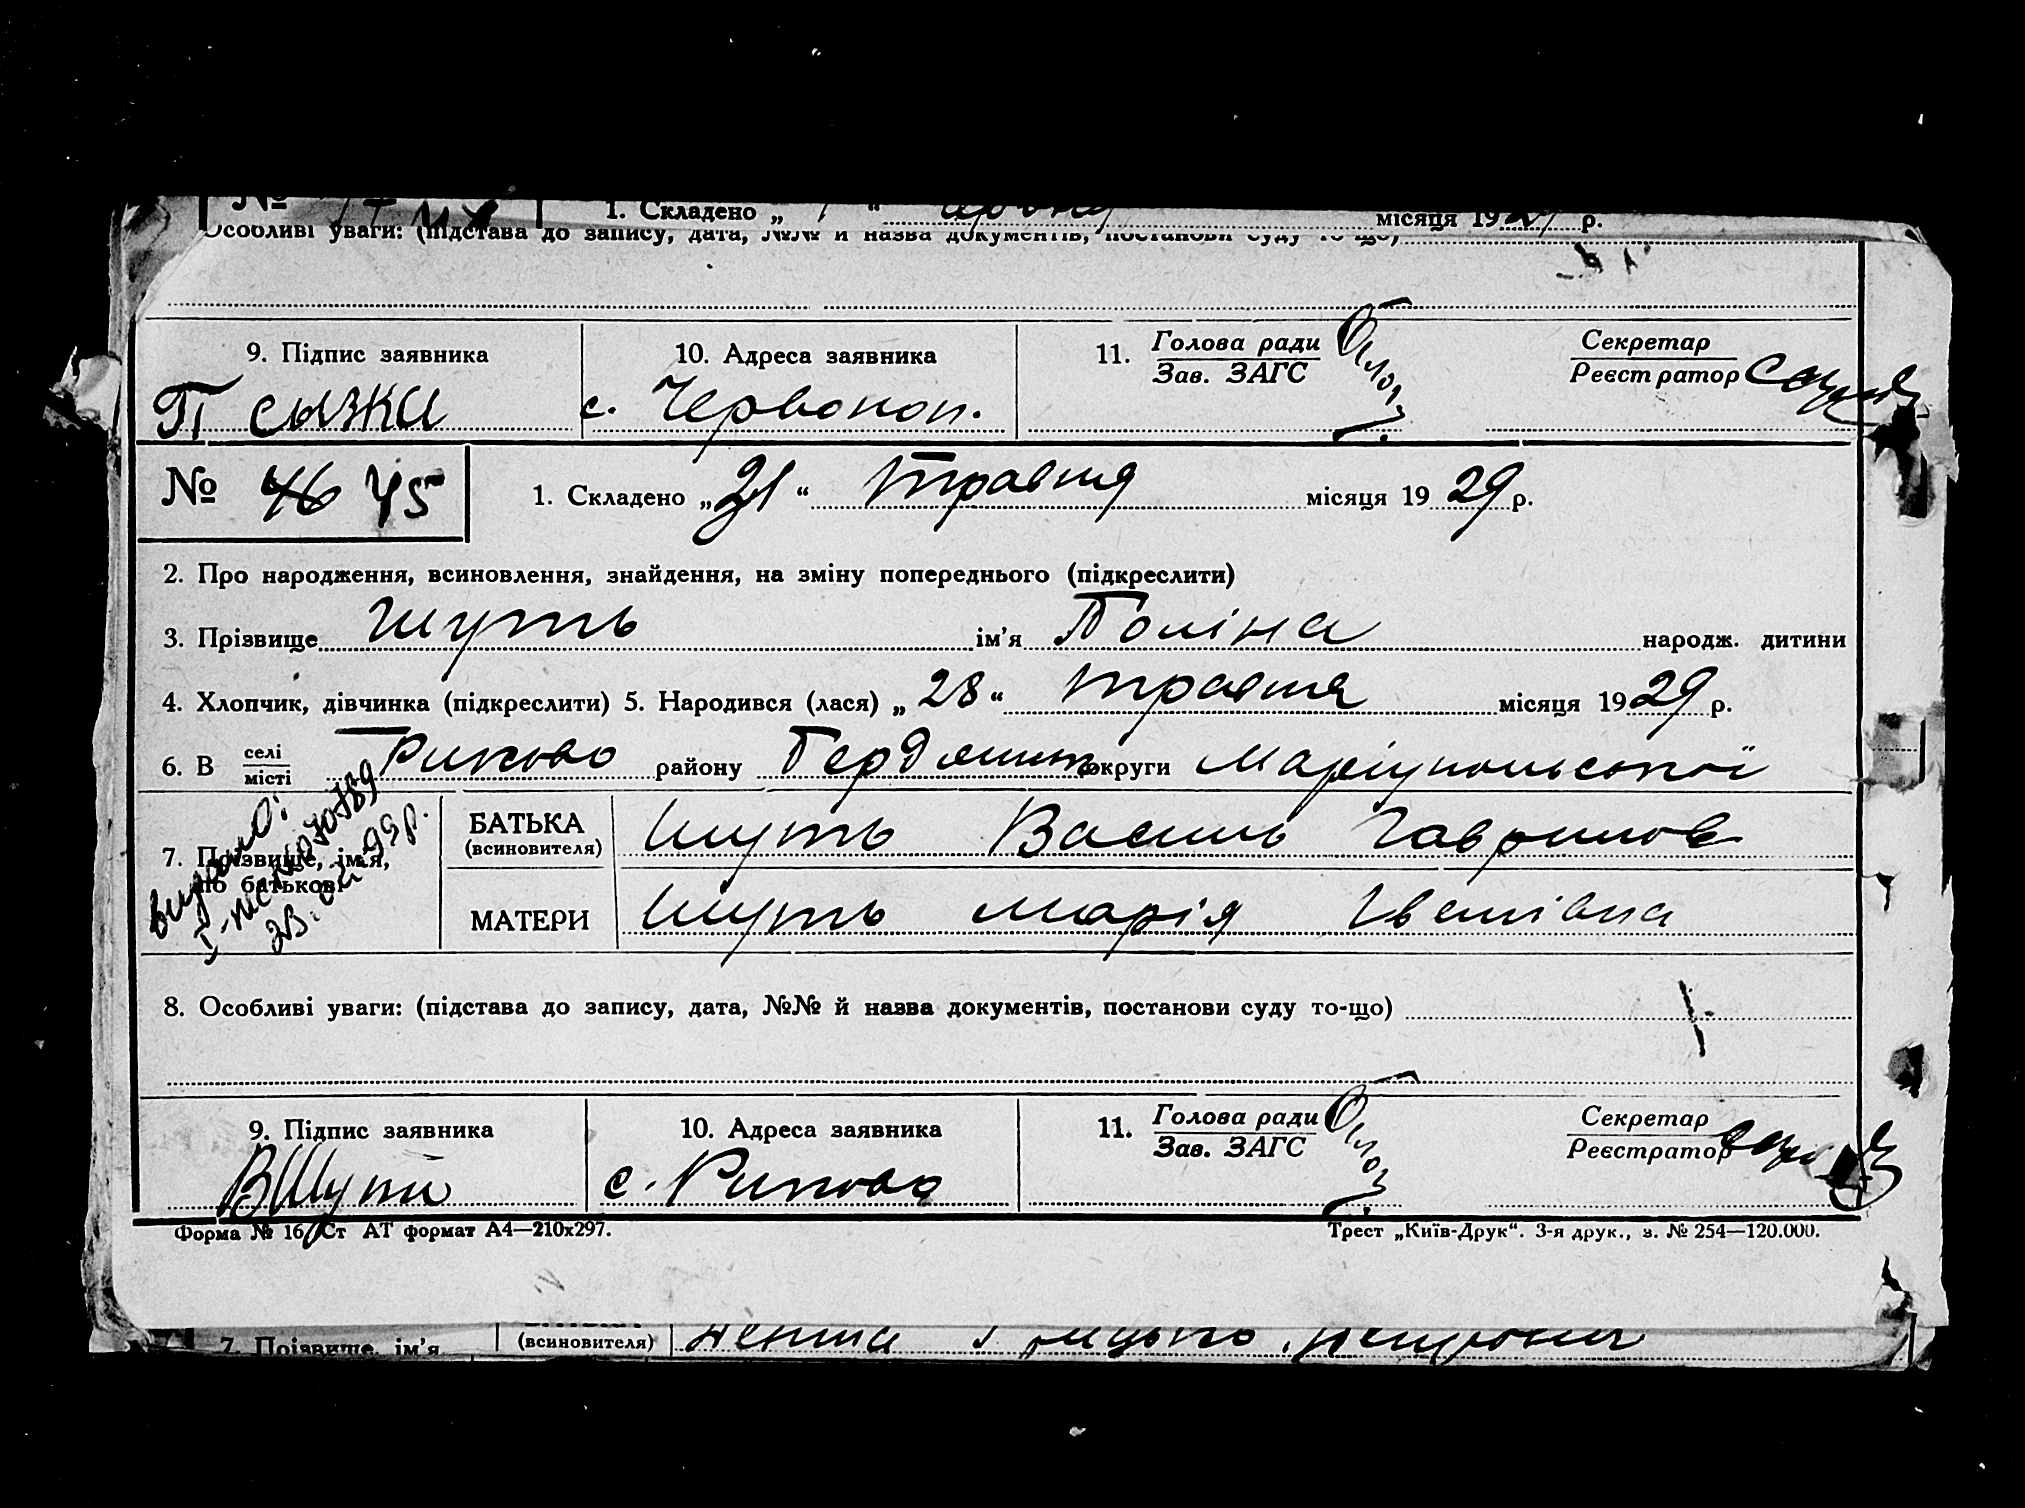 № 1. Складено „ “ місяця 19 р.
Особливі уваги: (підстава до запису, дата, №№ й назва документів, постанови суду то-що)
9. Підпис заявника 10. Адреса заявника 11. Голова ради Секретар
Зав. ЗАГС Реєстратор
П Сызка с. Червоноп.
№ 46 45 1. Складено „31“ травня місяця 1929 р.
2. Про народження, всиновлення, знайдення, на зміну попереднього (підкреслити)
3. Прізвище Шуть ім'я Поліна народж. дитини
4. Хлопчик, дівчинка (підкреслити) 5. Народився (лася) „28“ травня місяця 1929 р.
6. В селі Риково району Бердянськ округи Маріупольської
місті
видано:
І-
23. 99р.
7. Прізвище, ім'я, по батькові
БАТЬКА (всиновителя) Шуть Василь Гаврилов
МАТЕРИ Шуть Марія Іванівна
8. Особливі уваги: (підстава до запису, дата, №№ й назва документів, постанови суду то-що)
9. Підпис заявника 10. Адреса заявника 11. Голова ради Секретар
Зав. ЗАГС Реєстратор
ВШуть с. Риково
Форма № 16 Ст АТ формат А4—210x297. Трест „Київ-Друк“. 3-я друк., з. № 254—120.000.
7. Прізвище, ім'я (всиновителя)